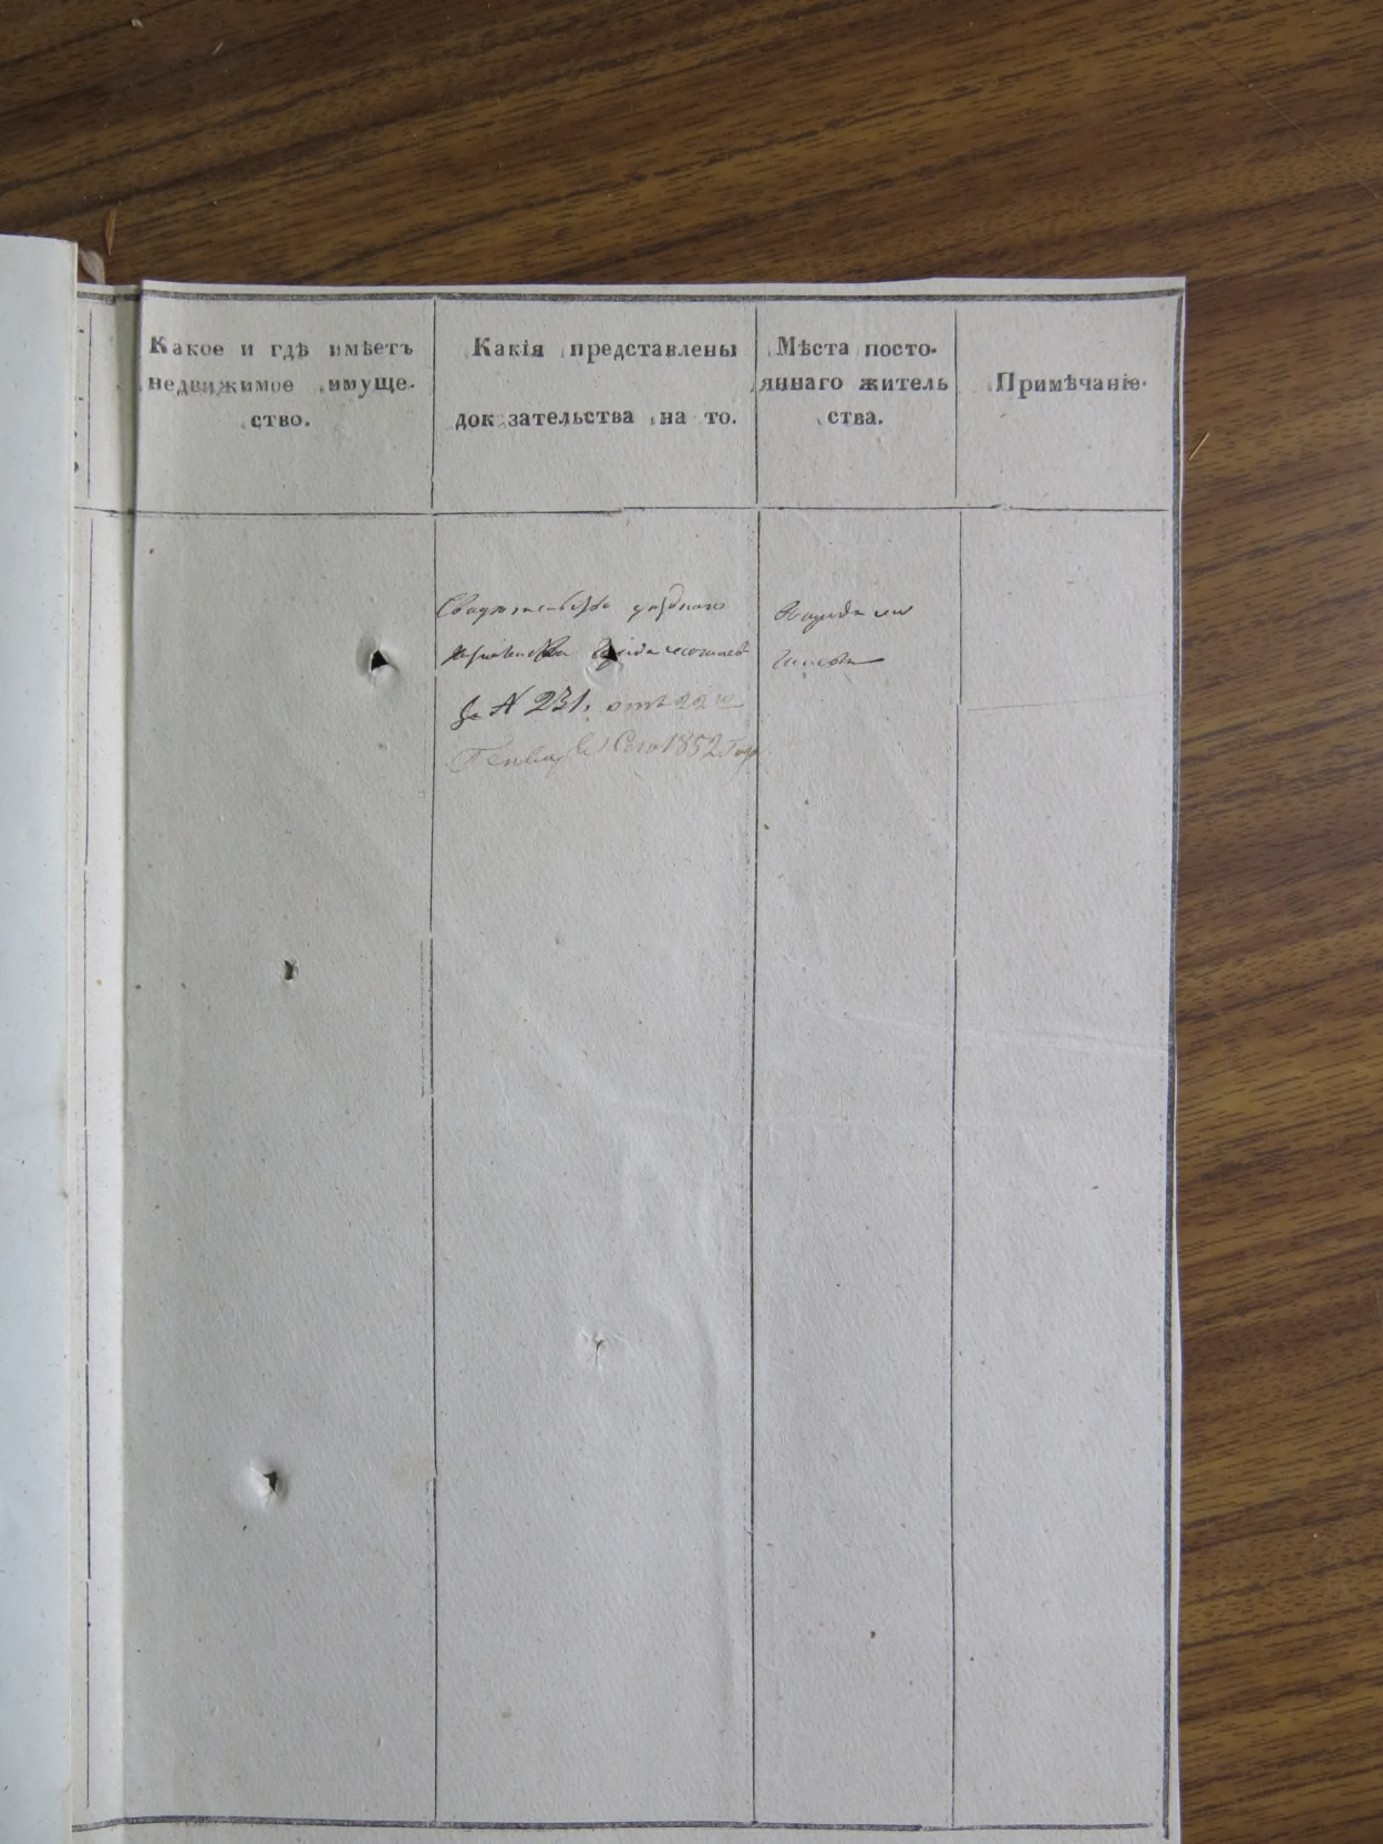 Какое и гдѣ имѣетъ
недвижимое имуще-
ство.
Какія представлены
док зательства на то.
Мѣста посто-
яннаго житель
ства.
Примѣчаніе.
Свидѣтельство уѣзднаго
за № 231, отъ 22го
Генваря сего 1852 года